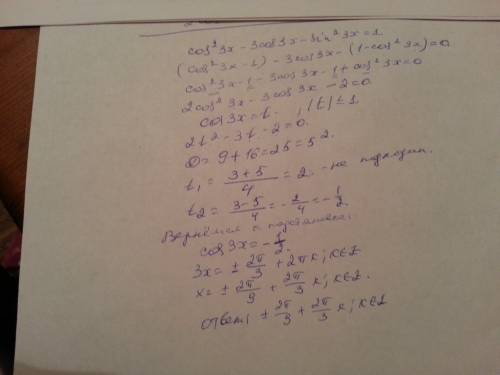 cos²3x - 3cos3x - sin²3x = 1
(cos²3x - 1) - 3cos3x - (1 - cos²3x) = 0
cos²3x - 1 - 3cos3x - 1 + cos²3x = 0
2cos²3x - 3cos3x - 2 = 0
cos3x = t. , |t| ≤ 1
2t² - 3t - 2 = 0.
D = 9 + 16 = 25 = 5².
t₁ = (3+5)/4 = 2 - не подходит.
t₂ = (3-5)/4 = -2/4 = -1/2.
Вернёмся к подстановке:
cos3x = -1/2.
3x = ± 2π/3 + 2πk; k∈Z
x = ± 2π/9 + 2π/3 k; k∈Z.
ответ: ± 2π/3 + 2π/3 k; k∈Z